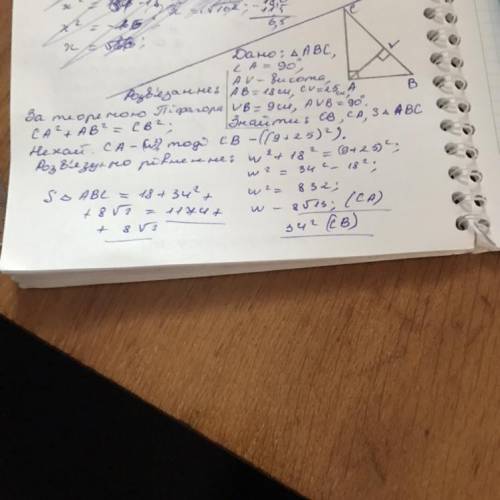 Дано: △ABC,
∠A = 90°,
AV – висота,
AB = 18см, CV = 25см,
VB = 9см, AVB = 90°.
Знайти: CB, CA, S△ABC
C
V
A
B
Розв'язання
За теоремою Піфагора
CA² + AB² = CB²;
Нехай CA – тоді CB – ((9+25)²).
рівняння
w² + 18² = (9+25)²;
w² = 34² – 18²;
w² = 832;
w – 8√13; (CA)
34² (CB)
S△ABC = 18 + 34² +
+ 8√1 = 1174 +
+ 8√1